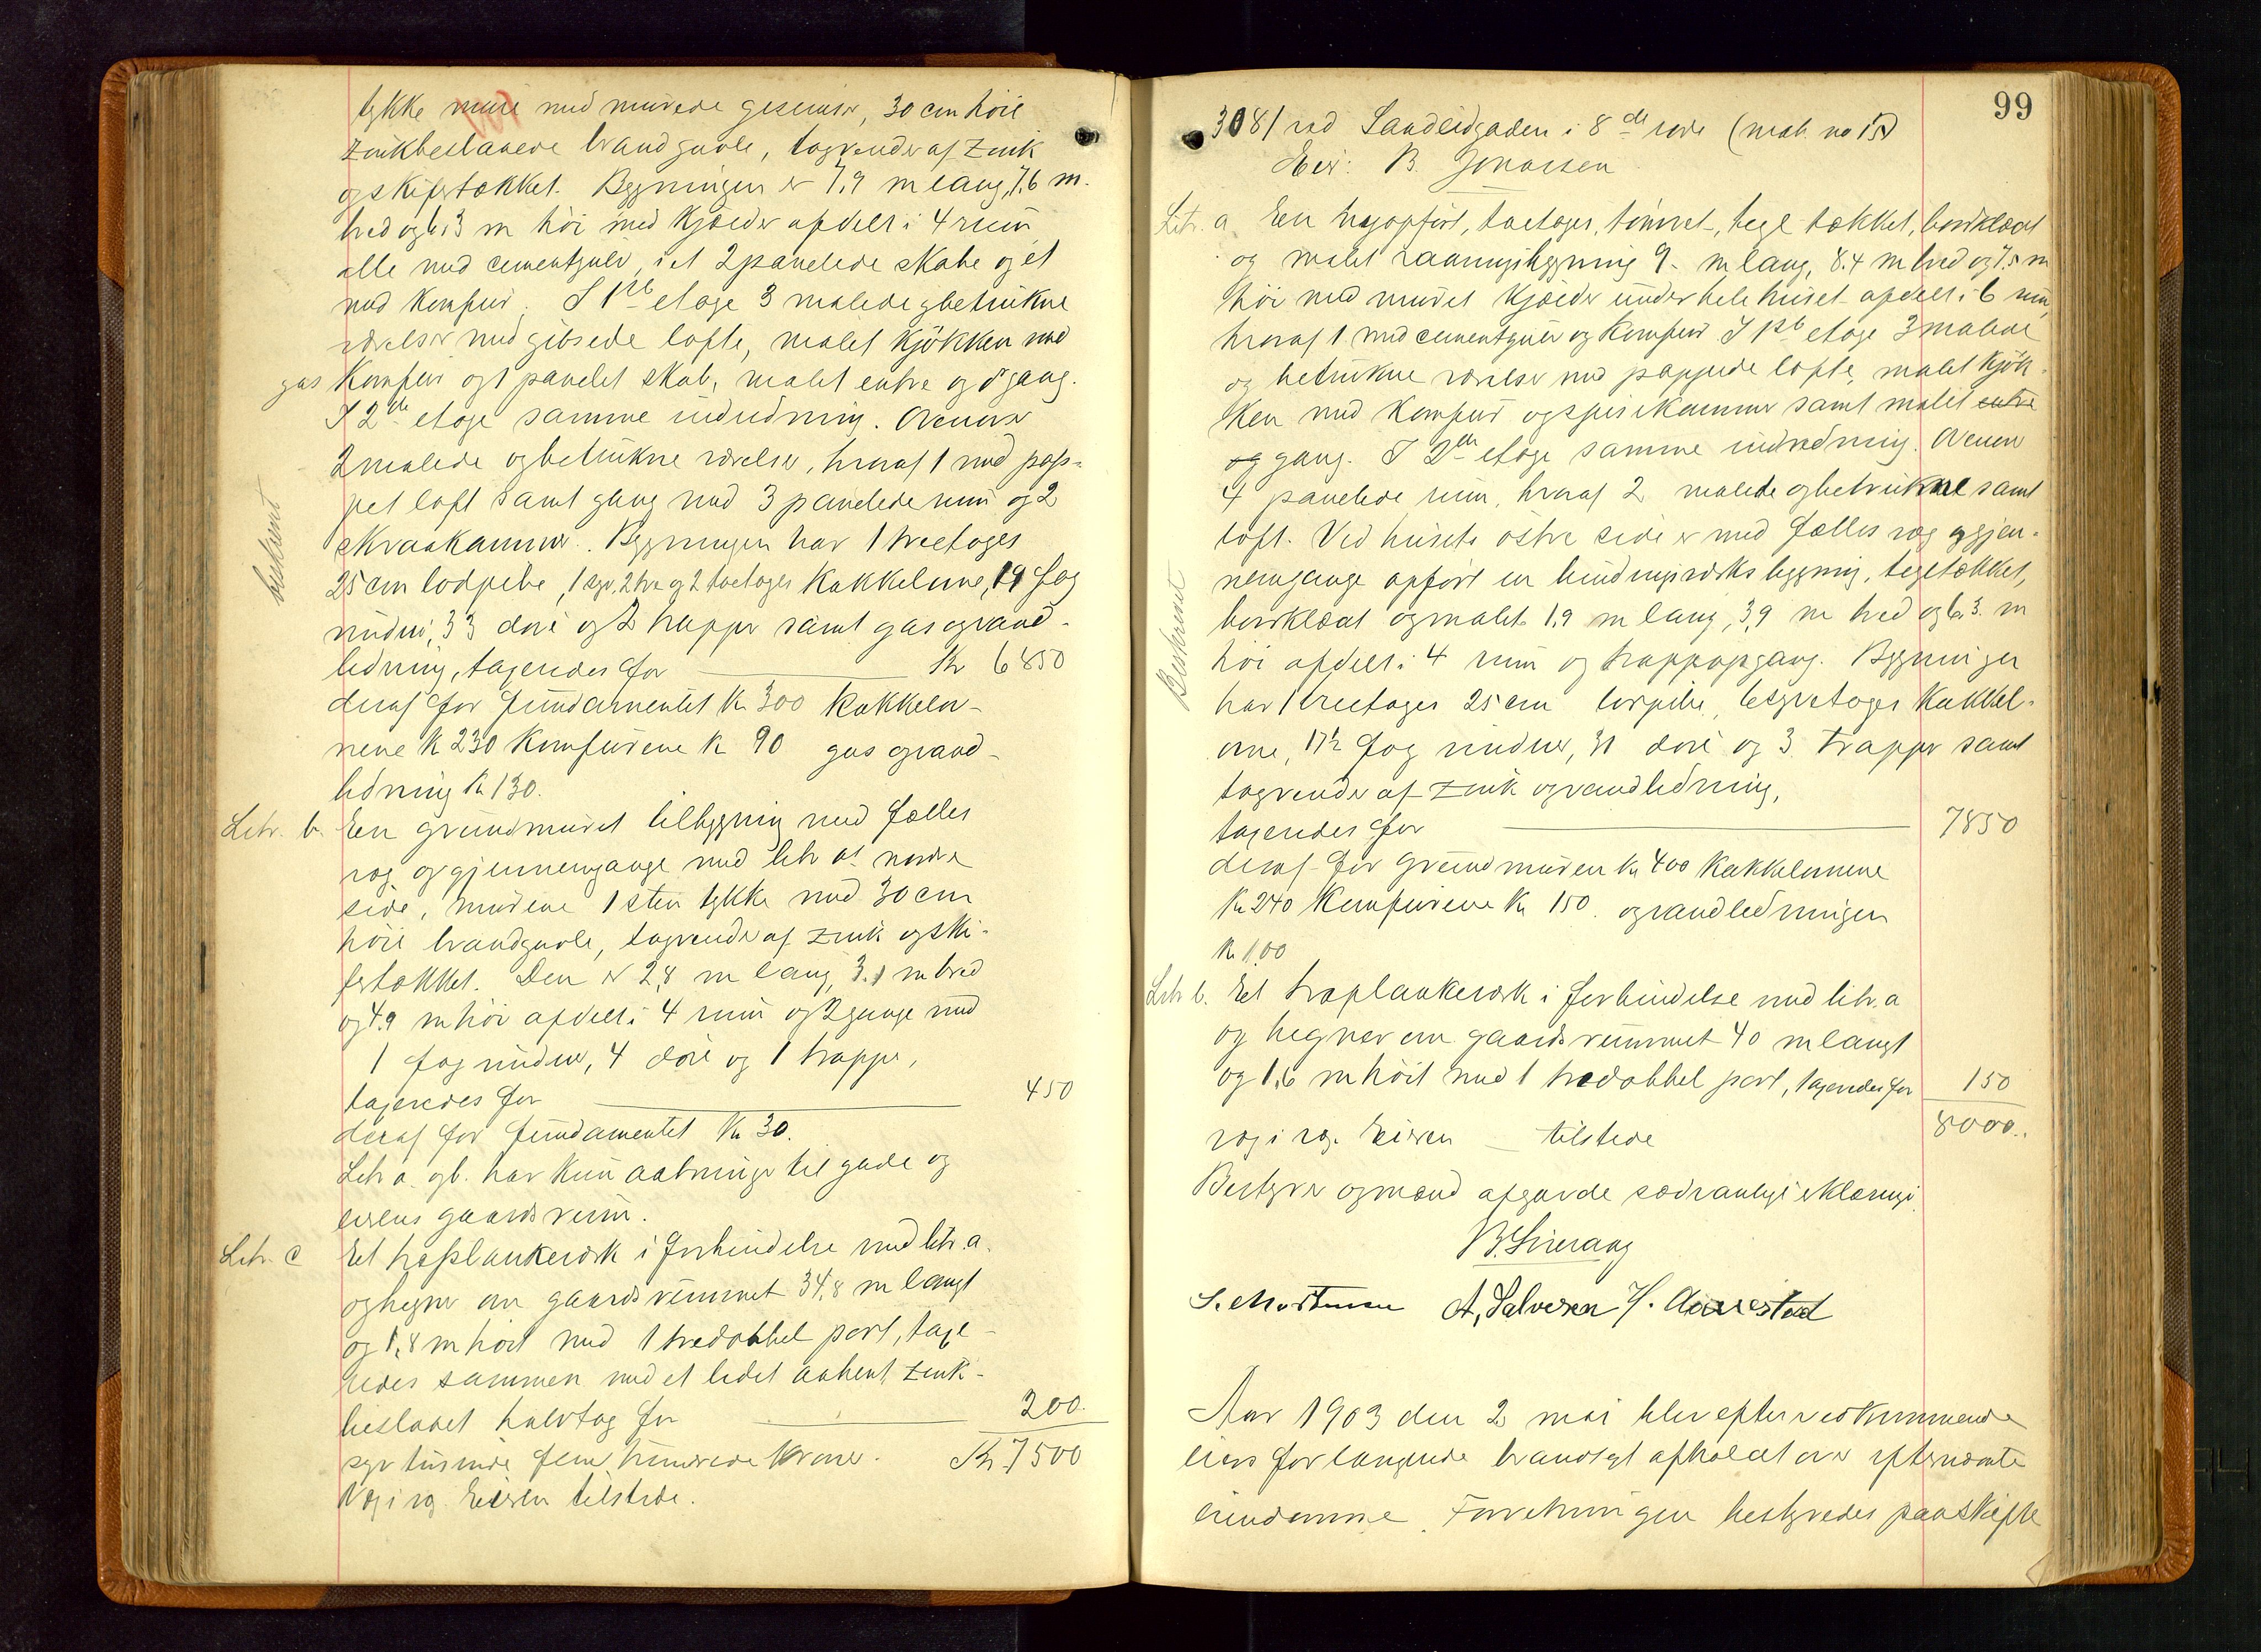 tykke mure med murede gesimser, 30 cm höie
zinkbeslaaede brandgavle, tagrender af zink
og skifertækket. Bygningen er 7,9 m lang, 7,6 m.
bred og 6,3 m höi med kjælder afdelt i 4 rum
alle med cementgulv, i et 2 panelede skabe og et
med komfur. I 1ste etage 3 malede og betrukne
værelser med gibsede lofte, malet kjökken med
gas komfur og 1 panelet skab, malet entre og gang.
I 2den etage samme indredning. Ovenover
2 malede og betrukne værelser, hvoraf 1 med pap-
pet loft samt gang med 3 panelede rum og 2
skraakammer. Bygningen har 1 treetages
25 cm lodpibe, 1 syv, 2 tre og 2 toetages kakkelovne, 19 fag
vinduer, 33 döre og 2 trapper samt gas og vand-
beskrevet
ledning, taxeredes for Kr 6850
deraf for fundamentet Kr 300 kakkelov-
nene Kr 230 komfurene Kr 90 gas og vand-
ledning Kr 130.
Litr. b. En grundmuret tilbygning med fælles
væg og gjennemgange med litr a's nordre
side, murene 1 sten tykke med 30 cm
höie brandgavle, tagrender af zink og ski-
fertækket. Den er 2,8 m lang, 3,1 m bred
og 4,9 m höi afdelt i 4 rum og 2 gange med
1 fag vinduer, 4 döre og 1 trappe,
taxeredes for 450
deraf for fundamentet Kr 30.
Litr a og b. har kun aabninger til gade og
eierens gaardsrum.
Litr. c Et træplankeværk i forbindelse med litr. a.
og hegner om gaardsrummet 34,8 m langt
og 1,8 m höit med 1 tredobbel port, taxe-
redes sammen med et lidet aabent zink-
beslaaet halvtag for 200.
syv tusinde fem hundrede kroner. Kr 7500
Væg i væg. Eieren tilstede.
99
308/ ved Sandeidgaden i 8de rode (matr. no 15)
Eier: B. Jonassen
Litr. a En nyopfört, toetages, tömret, tegltækket, bordklædt
og malet vaaningsbygning 9. m lang, 8.4 m bred og 7.5 m
höi med muret kjælder under hele huset afdelt i 6 rum,
hvoraf 1 med cementgulv og komfur. I 1ste etage 3 malede
og betrukne værelser med pappede lofte, malet kjök-
ken med komfur og spisekammer samt malet entre
og gang. I 2den etage samme indredning. Ovenover
4 panelede rum, hvoraf 2 malede og betrukne samt
loft. Ved husets östre side er med fælles væg og gjen-
nemgange opfört en bindingsværks bygning, tegltækket,
bordklædt og malet 1,9 m lang, 3,9 m bred og 6,3 m
höi afdelt i 4 rum og trappopgang. Bygningen
Beskrevet
har 1 treetages 25 cm lodpibe, 6 syvetages kakkel-
ovne, 17½ fag vinduer, 31 döre og 3 trapper samt
tagrender af zink og vandledning,
taxeredes for 7850
deraf for grundmuren Kr 400 kakkelovnene
Kr 240 komfurene Kr 150. og vandledningen
Kr 100
Litr b. Et træplankeværk i forbindelse med litr. a
og hegner om gaardsrummet 40 m langt
og 1,6 m höit med 1 tredobbel port, taxeredes for 150
8000.
væg i væg. Eieren tilstede
Bestyrer og mænd afgav de sædvanlige erklæringer.
B. Sinerang
S. Mortensen A. Salvesen H. Aarrestad
Aar 1903 den 2 mai blev efter vedkommende
eiers forlangende brandtaxt afholdt over efternævnte
eiendomme. Forretningen bestyredes paa skifte